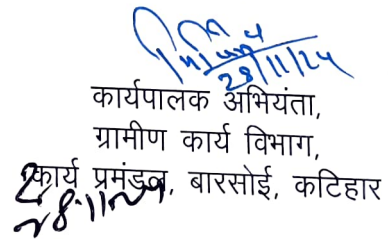 28/11/24
कार्यपालक अभियंता,
ग्रामीण कार्य विभाग,
कार्य प्रमंडल, बारसोई, कटिहार